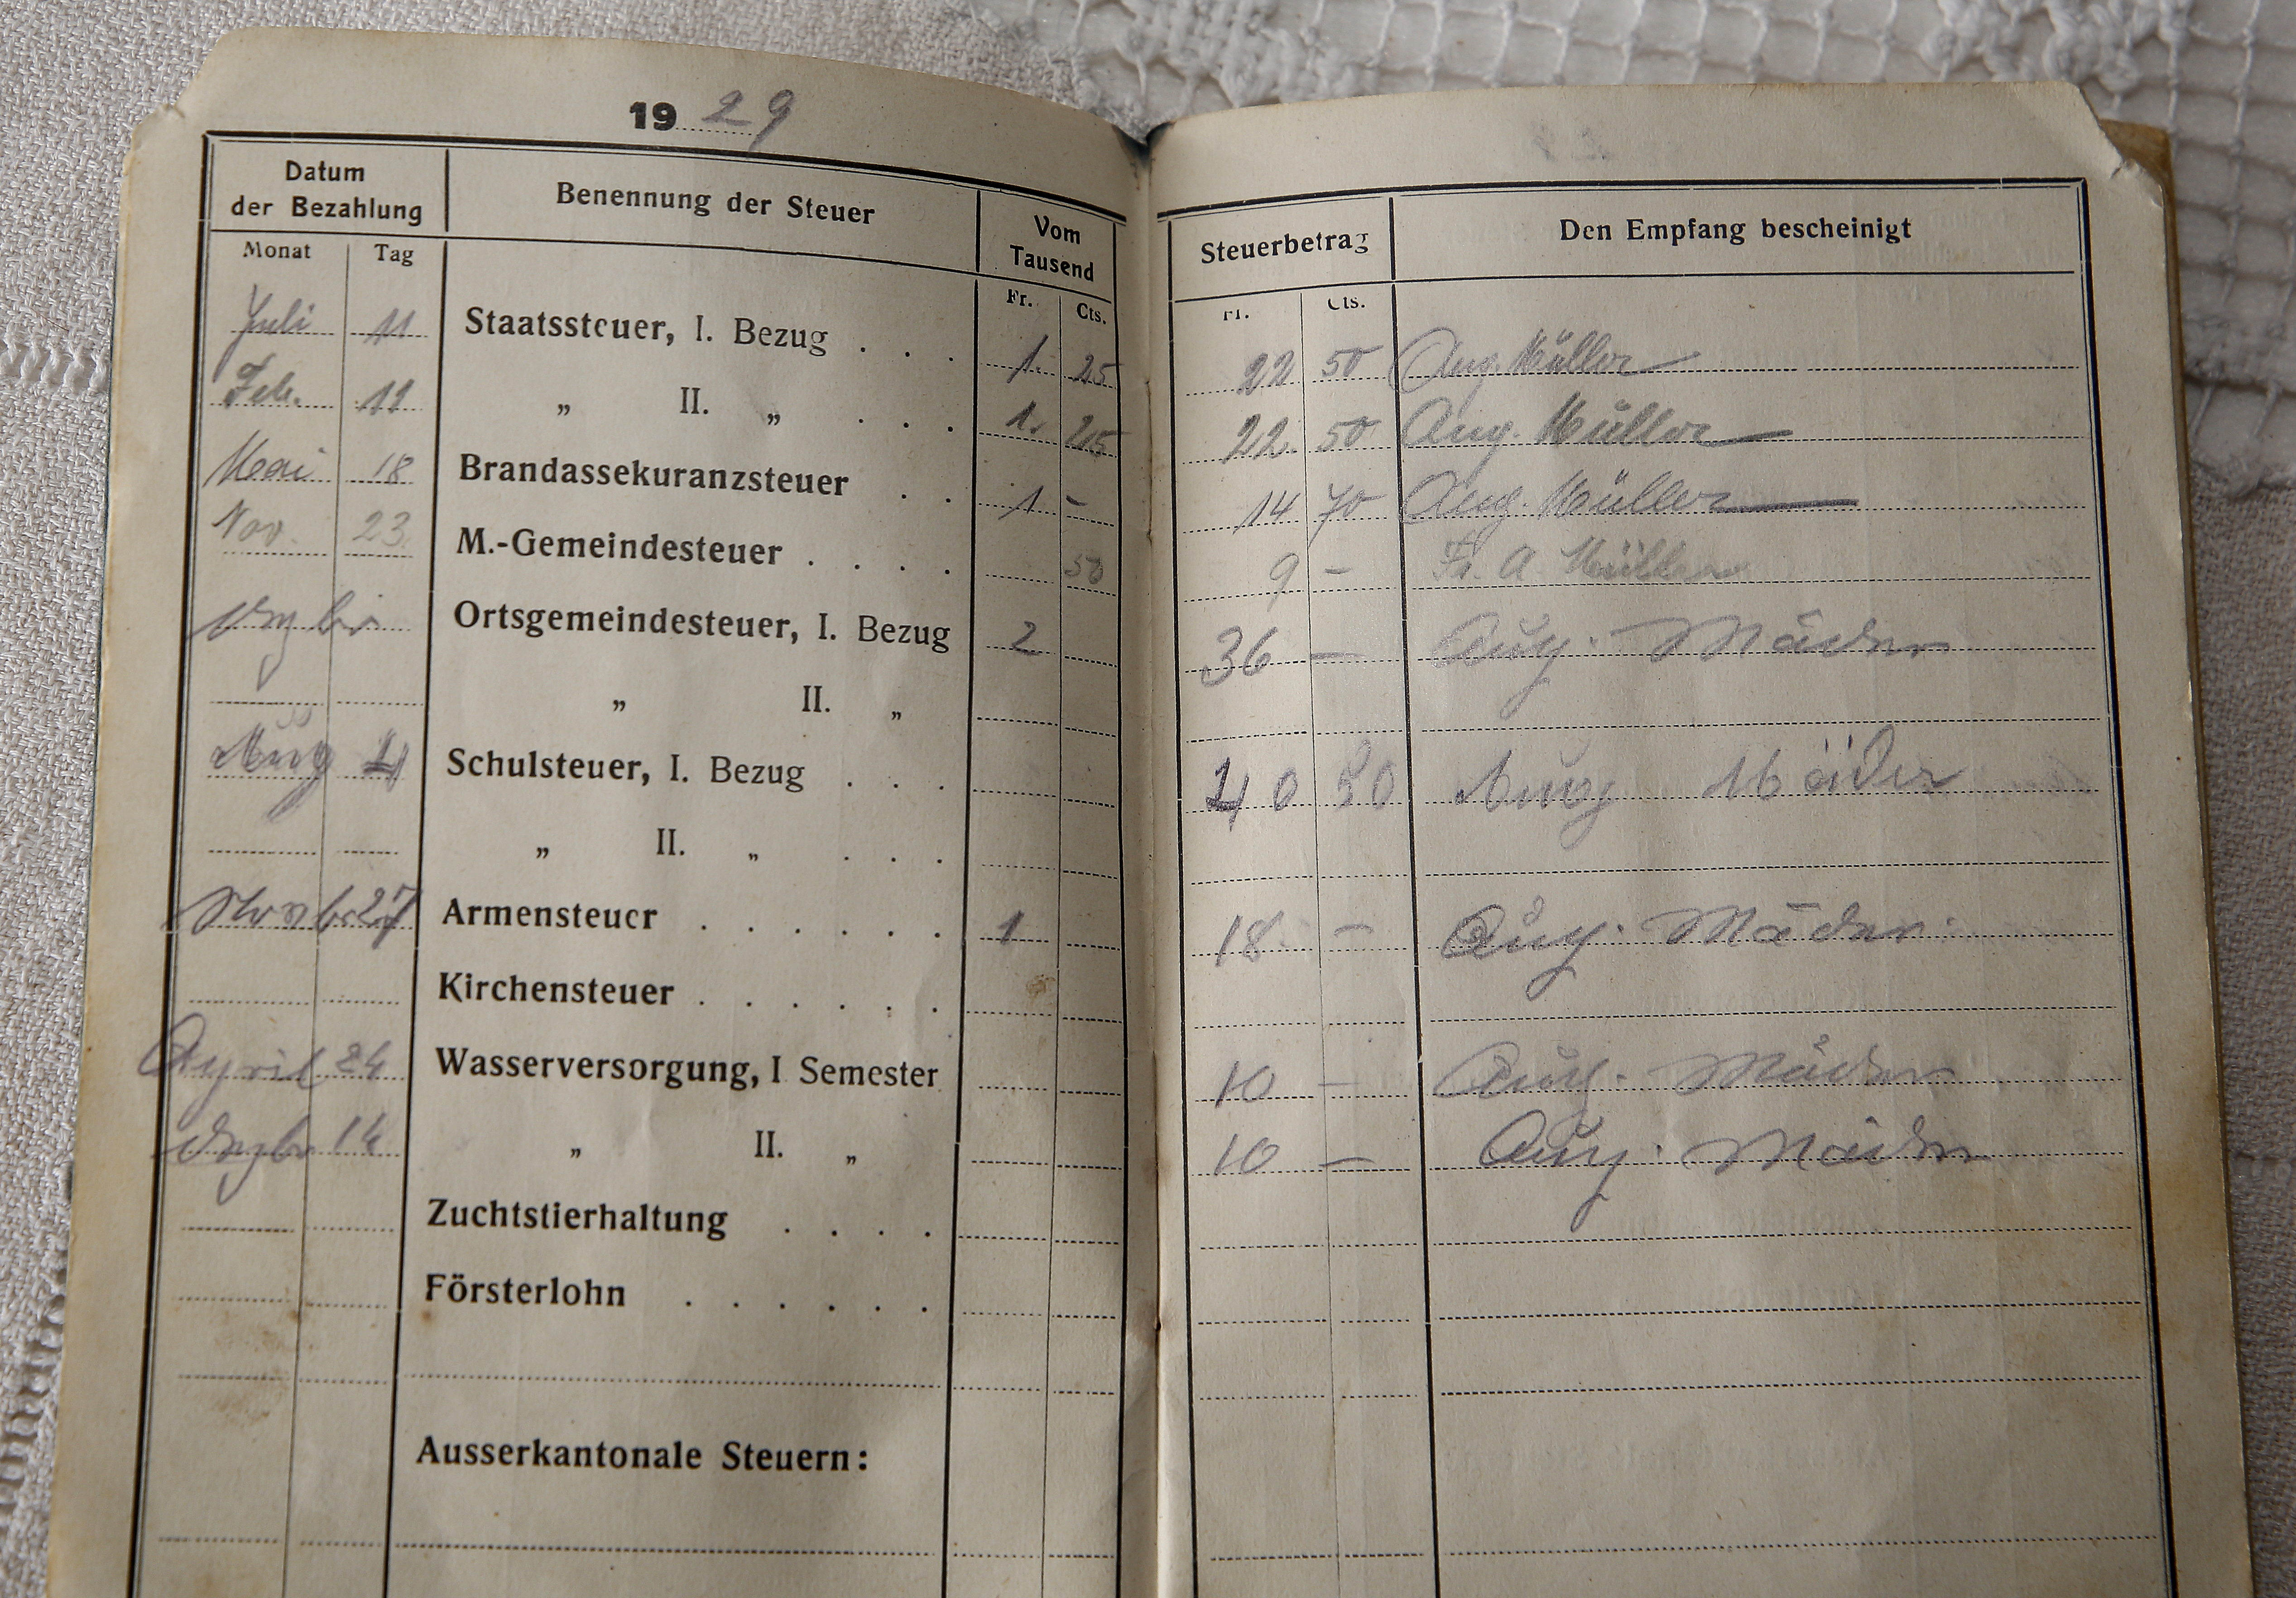 1929
Datum der Bezahlung Benennung der Steuer Vom Tausend Steuerbetrag Den Empfang bescheinigt
Monat Tag Fr. Cts. Fr. Cts.
Juli 11 Staatssteuer, I. Bezug . . . 1. 25 22 50 Aug. Müller
Feb. 11 „ II. „ . . . 1. 25 22. 50 Aug. Müller
Mai 18 Brandassekuranzsteuer . . 1 - 14 70 Aug. Müller
Nov. 23. M.-Gemeindesteuer . . . . 50 9 - Fr. A. Müller
Ortsgemeindesteuer, I. Bezug 2 36 - Aug. Mäder
„ II. „
Aug 4 Schulsteuer, I. Bezug . . . 40 50 Aug Mäder
„ II. „ . . .
27 Armensteuer . . . . . . 1 18 - Aug. Mäder.
Kirchensteuer . . . . . .
April 24 Wasserversorgung, I Semester 10 - Aug. Mäder
14 „ II. „ 10 - Aug. Mäder
Zuchtstierhaltung . . . .
Försterlohn . . . . . .
Ausserkantonale Steuern: